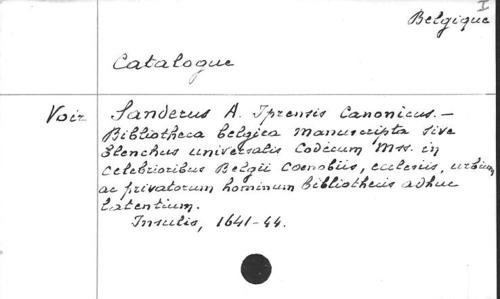 I
Belgique
Catalogue
Voir Sanderus A. Iprensis Canonicus. —
Bibliotheca belgica manuscripta sive
Elenchus universalis Codicum Mss. in
celebrioribus Belgii coenobiis, ecclesiis, urbium
ac privatorum hominum bibliothecis adhuc
latentium.
Insulis, 1641-44.